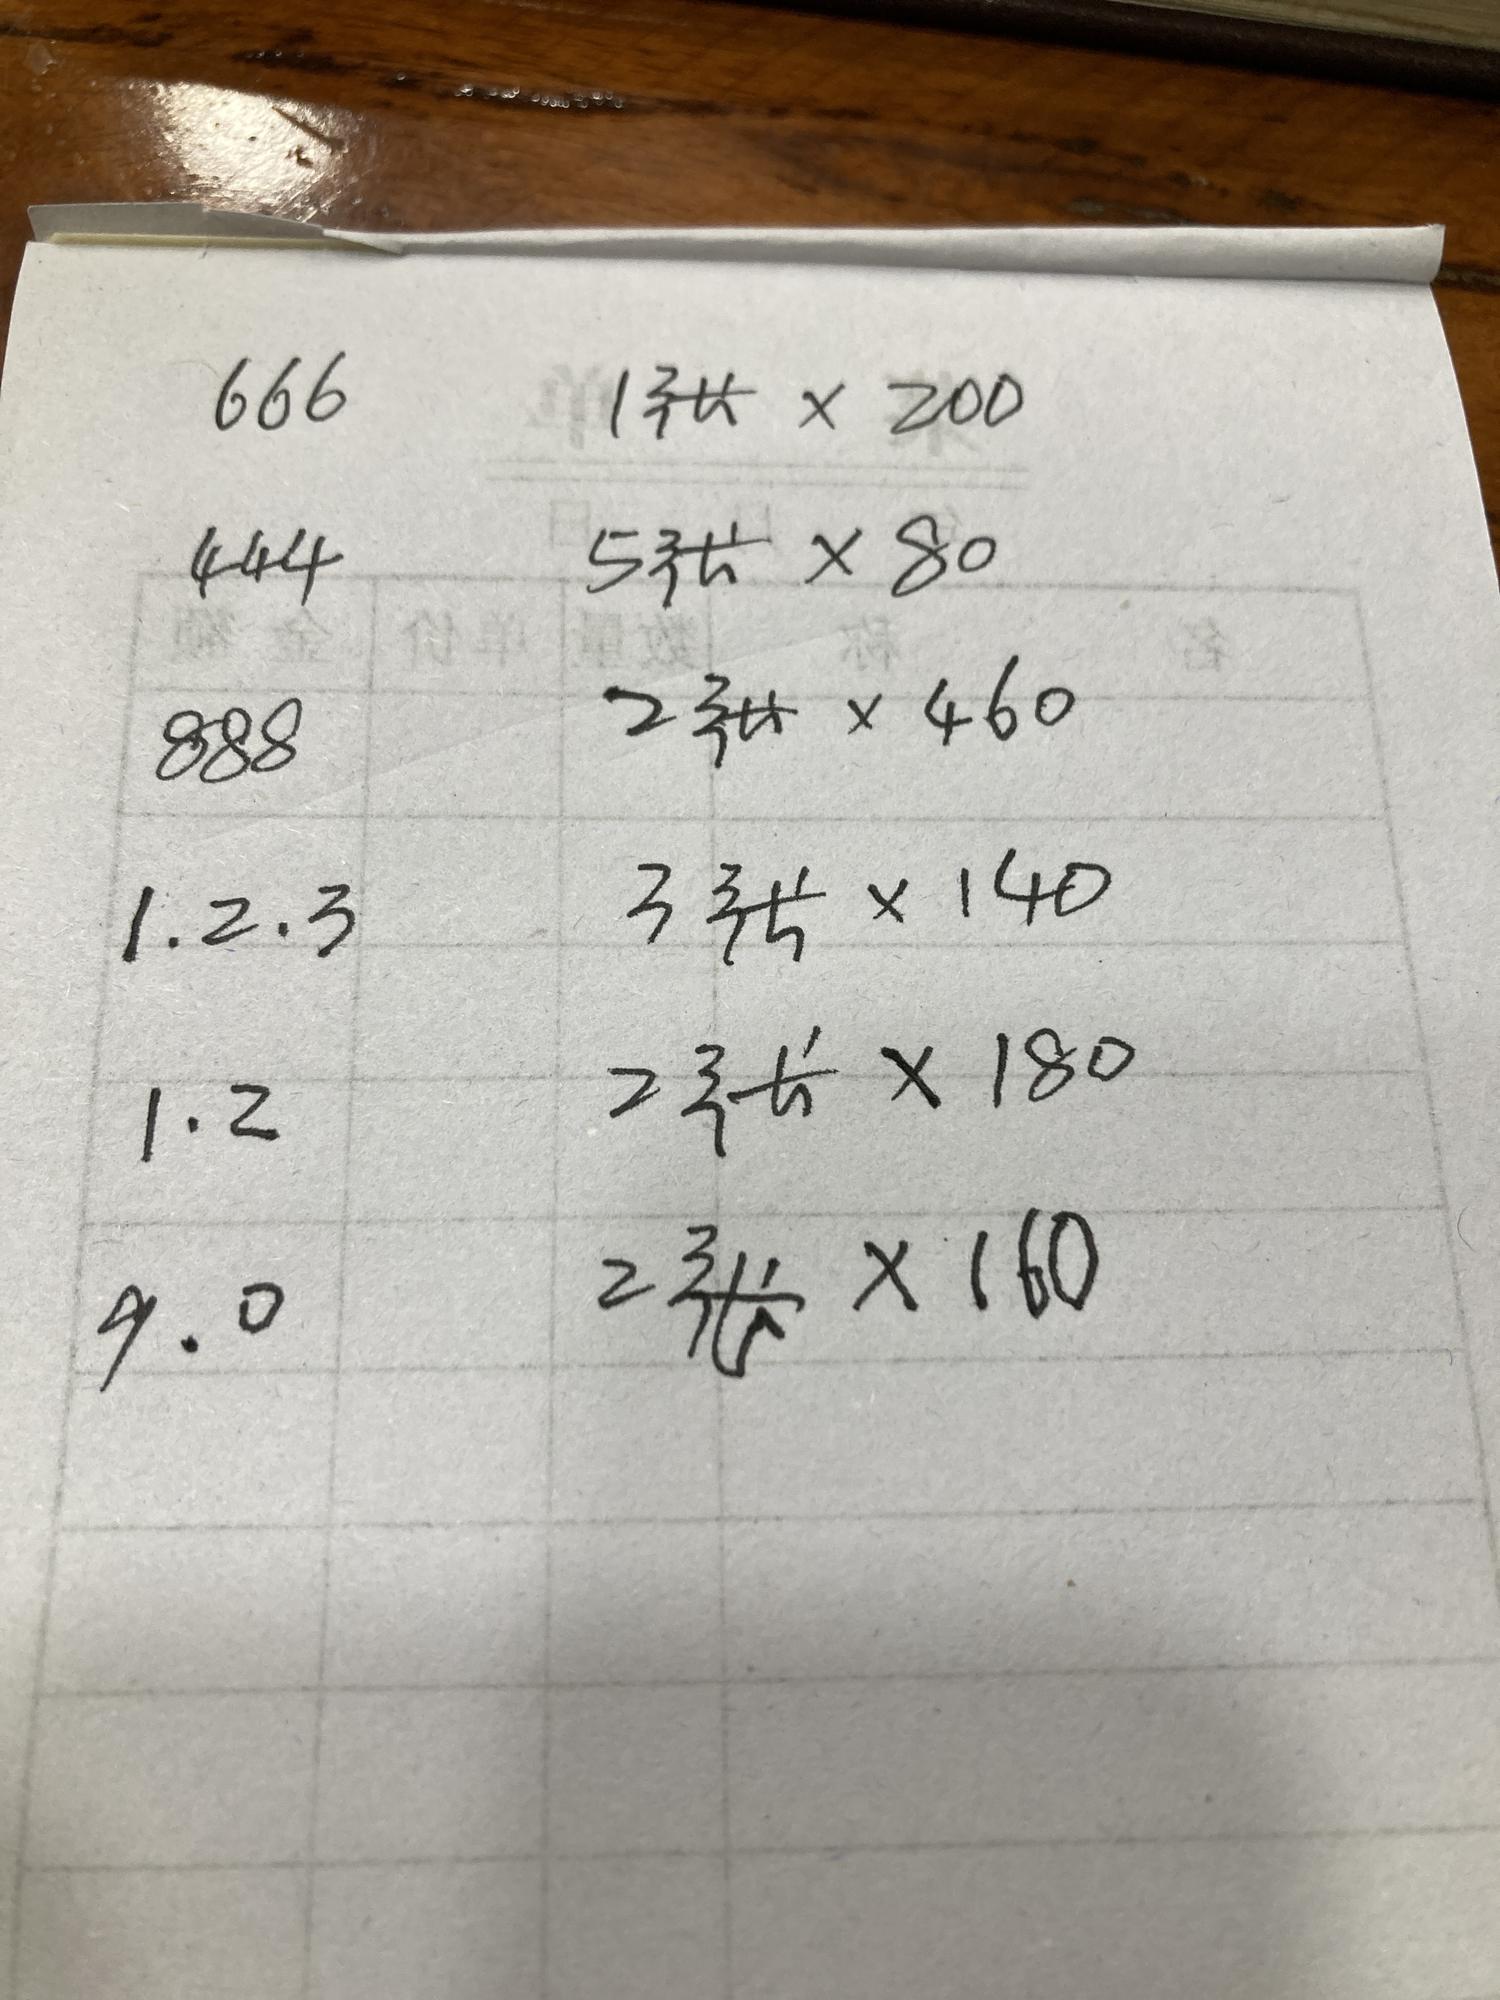 666 1张 × 200
444 5张 × 80
888 2张 × 460
1.2.3 3张 × 140
1.2 2张 × 180
9.0 2张 × 160